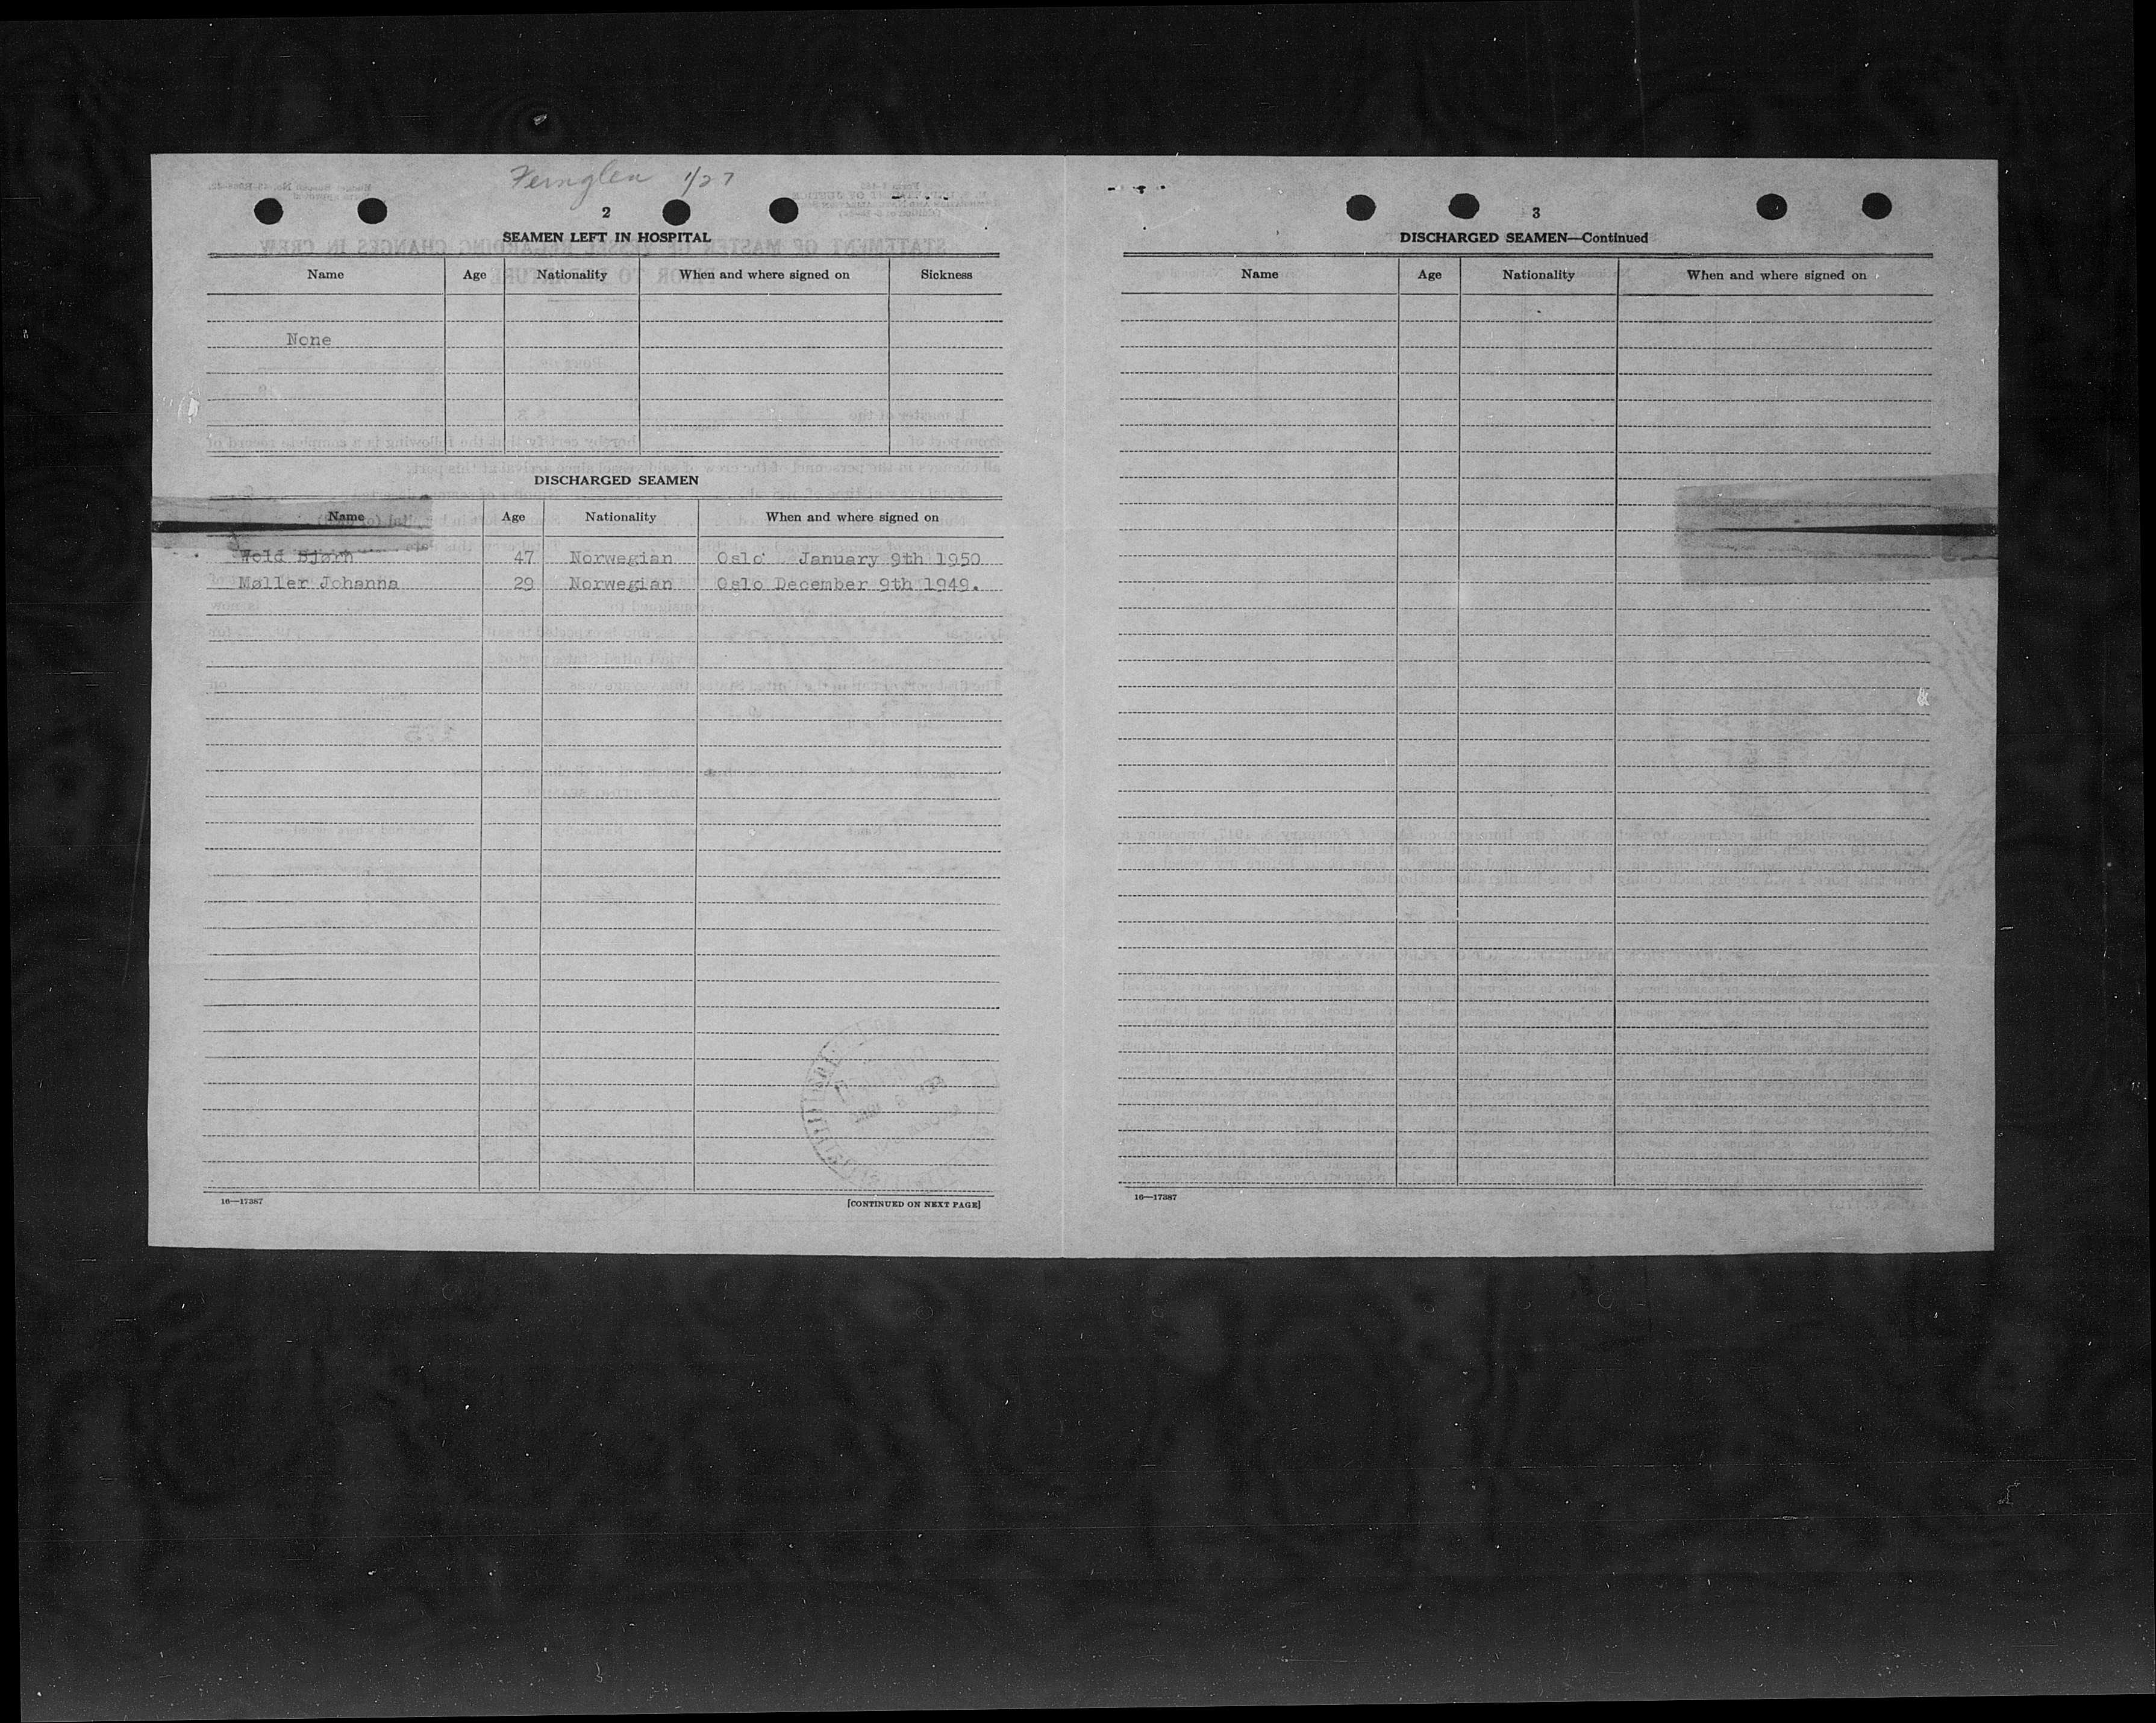 Fernglen 1/27
2
SEAMEN LEFT IN HOSPITAL
Name Age Nationality When and where signed on Sickness
None
DISCHARGED SEAMEN
Name Age Nationality When and where signed on
Wold Bjørn 47 Norwegian Oslo January 9th 1950
Møller Johanna 29 Norwegian Oslo December 9th 1949.
16—17387
[CONTINUED ON NEXT PAGE]
3
DISCHARGED SEAMEN—Continued
Name Age Nationality When and where signed on
16—17387